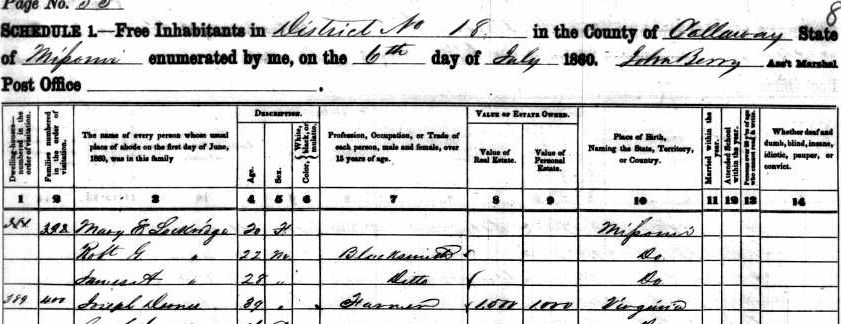 Page No. 53
8
SCHEDULE 1.—Free Inhabitants in District No 18 in the County of Callaway State
of Missouri enumerated by me, on the 6th day of July 1860. John Berry Ass't Marshal
Post Office
Dwelling-houses—numbered in the order of visitation.
Families numbered in the order of visitation.
The name of every person whose usual place of abode on the first day of June, 1860, was in this family
DESCRIPTION.
Age.
Sex.
Color, White, black, or mulatto.
Profession, Occupation, or Trade of each person, male and female, over 15 years of age.
VALUE OF ESTATE OWNED.
Value of Real Estate.
Value of Personal Estate.
Place of Birth, Naming the State, Territory, or Country.
Married within the year.
Attended School within the year.
Persons over 20 years of age who cannot read & write.
Whether deaf and dumb, blind, insane, idiotic, pauper, or convict.
1 2 3 4 5 6 7 8 9 10 11 12 13 14
Mary E Lockridge 20 F Missouri
Robt G " 22 m Blacksmith Do
James A " 28 " Ditto Do
389 400 Joseph 39 " Farmer 1000 1000 Virginia